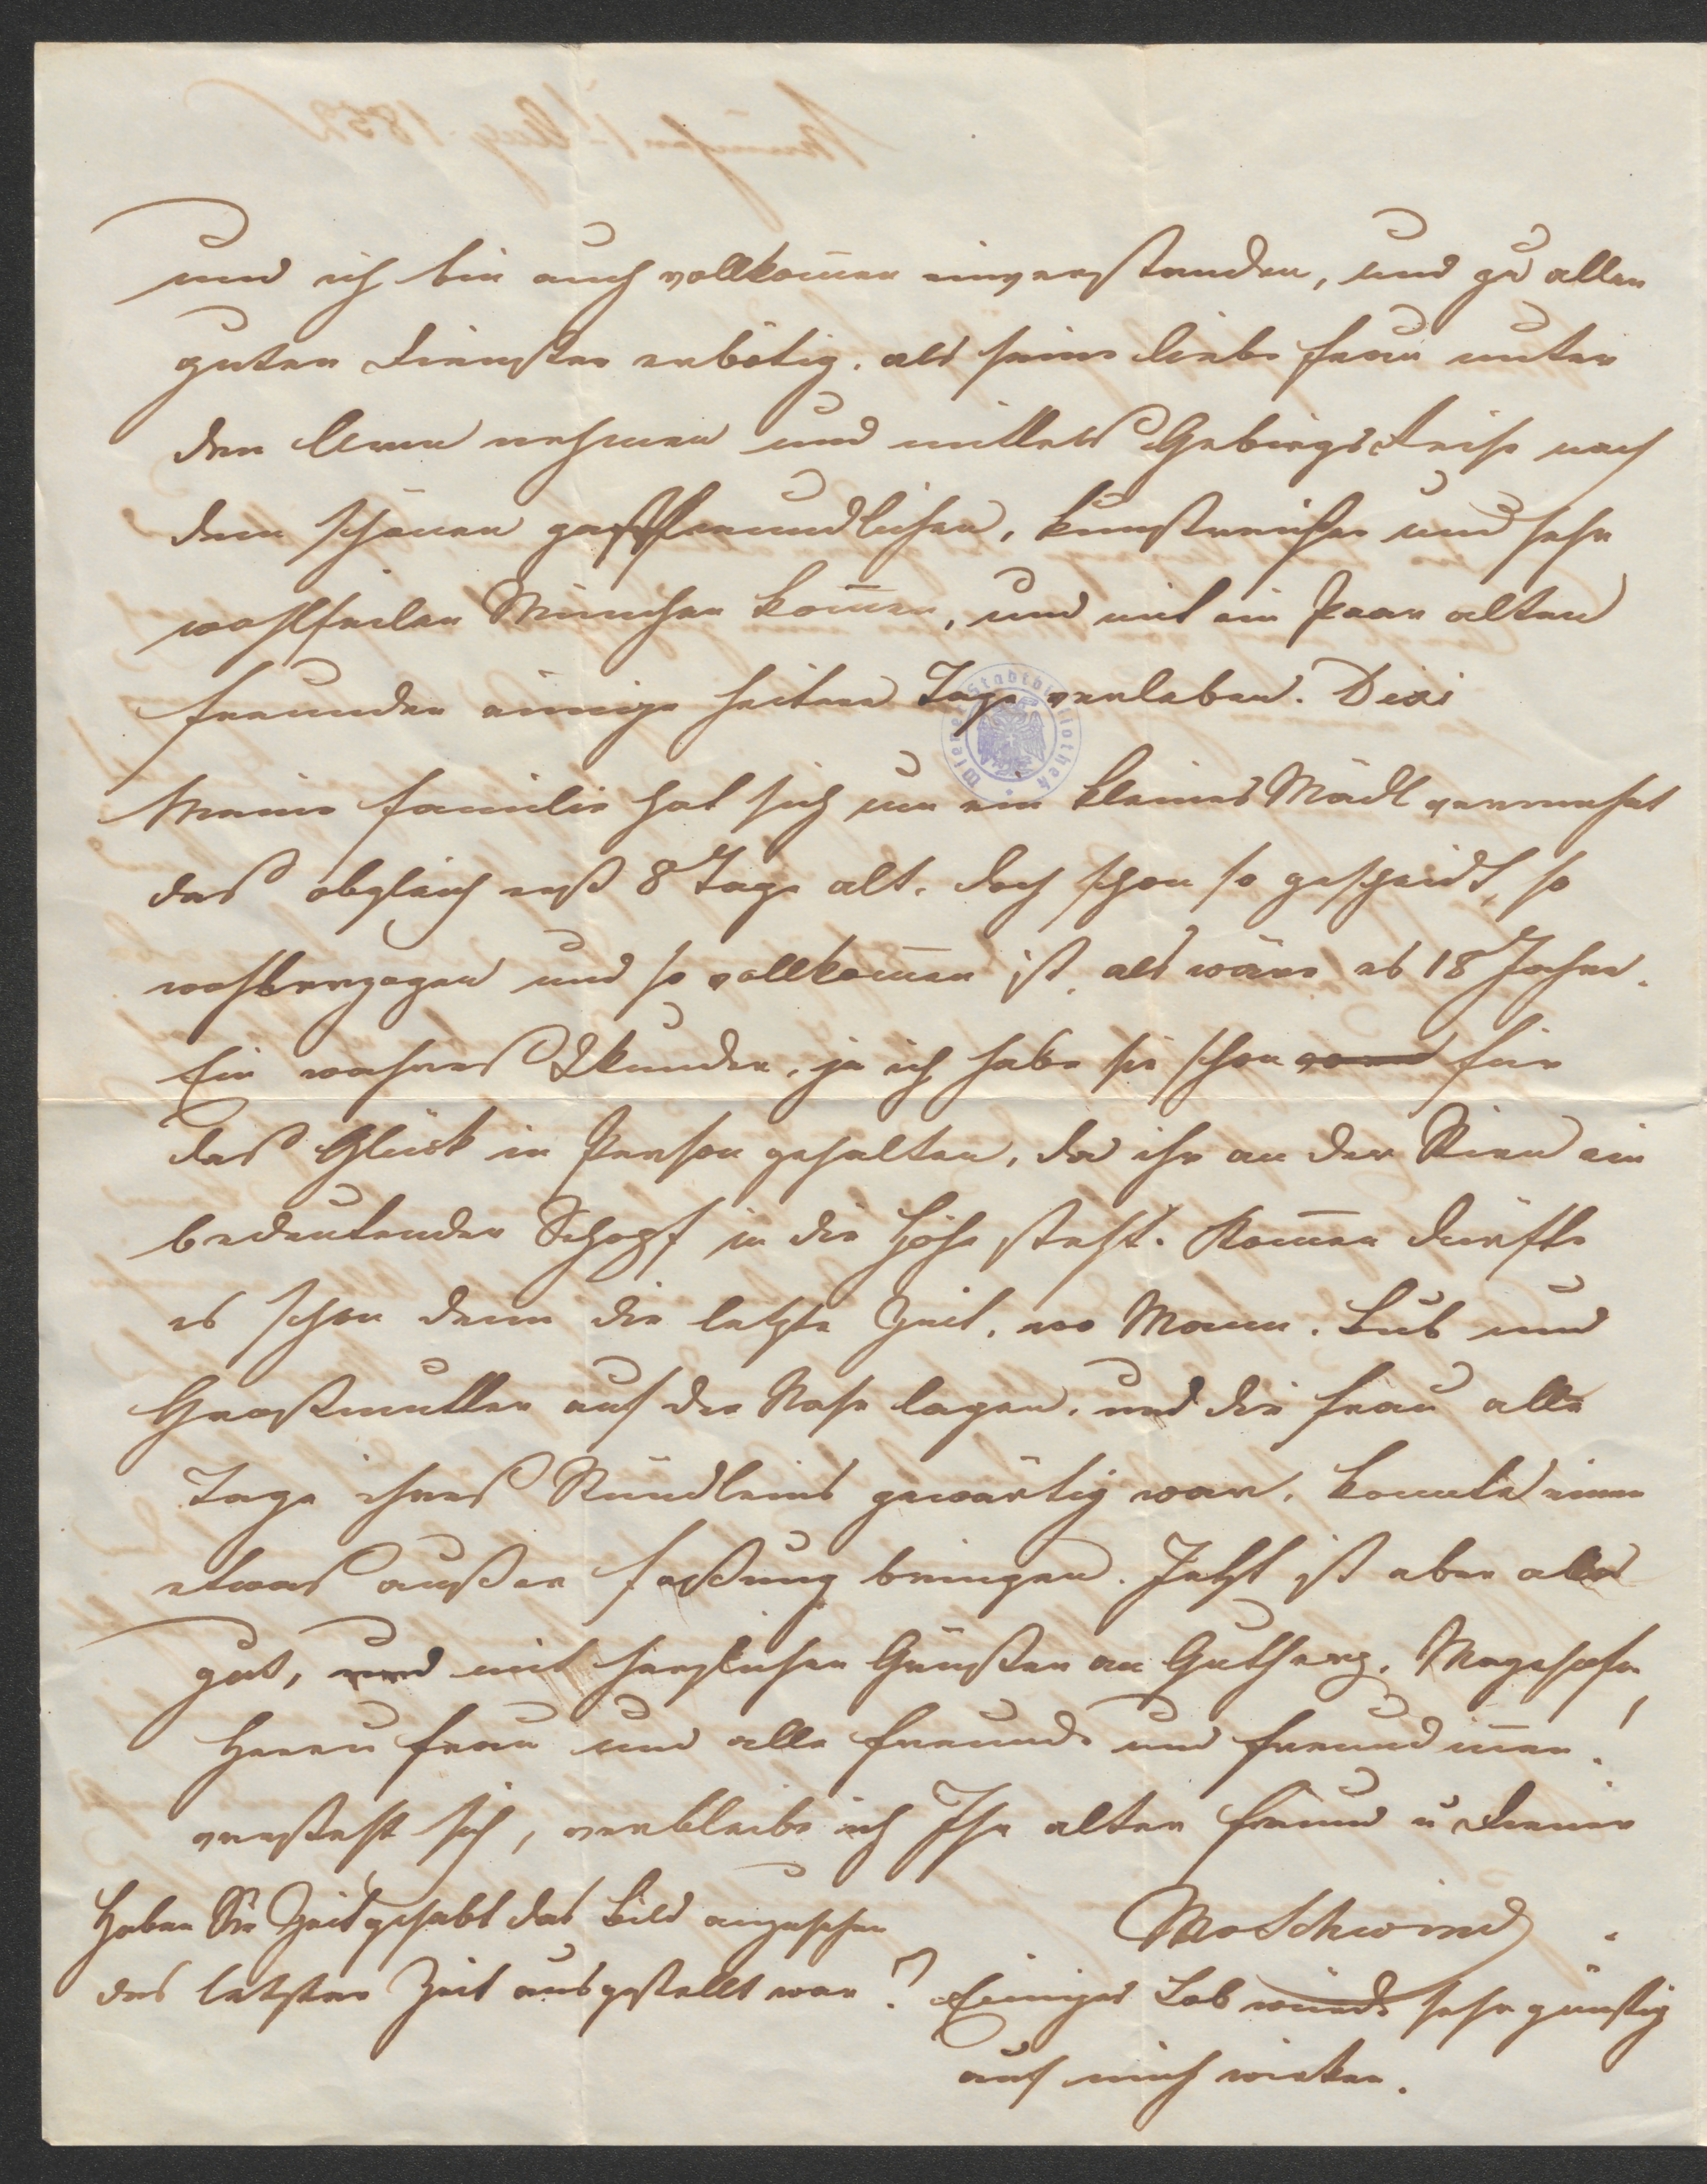 und ich bin auch vollkom̅en einverstanden, und zu allen
guten Diensten erbötig, als seine liebe Frau unter
den Arm nehmen und mittels GebirgsReise nach
dem schönen gastfreundlichen, kunstreichen und sehr
wohlfeilen München kom̅en, und mit ein Paar alten
Freunden einige heitere Tage verleben. Dixi
Meine Familie hat sich um ein kleines Mädl vermehrt
das obgleich erst 8 Tage alt, doch schon so gescheidt, so
wohlerzogen und so vollkom̅en ist, als wäre es 18 Jahre.
Ein wahres Wunder, ja ich habe sie schon für
das Glück in Person gehalten, da ihr an der Stirn ein
bedeutender Schopf in die Höhe steht. Kom̅en durfte
es schon denn die letzte Zeit, wo Mann, Bub und
Großmutter auf der Nase lagen, und die Frau alle
Tage ihres Stündleins gewärtig war, konnte einen
etwas außer Faßung bringen. Jetzt ist aber alles
gut, und mit herzlichen Grüßen an Gutherz,
Herrn Frau und alle Freunde und Freundin̅en!
versteht sich, verbleibe ich Ihr alter Freund u Diener
MvSchwind.
Haben Sie Zeit gehabt das Bild anzusehen
das letzter Zeit ausgestellt war? Einiges Lob würde sehr günstig
auf mich wirken.
Wiener Stadtbibliothek
München 1852